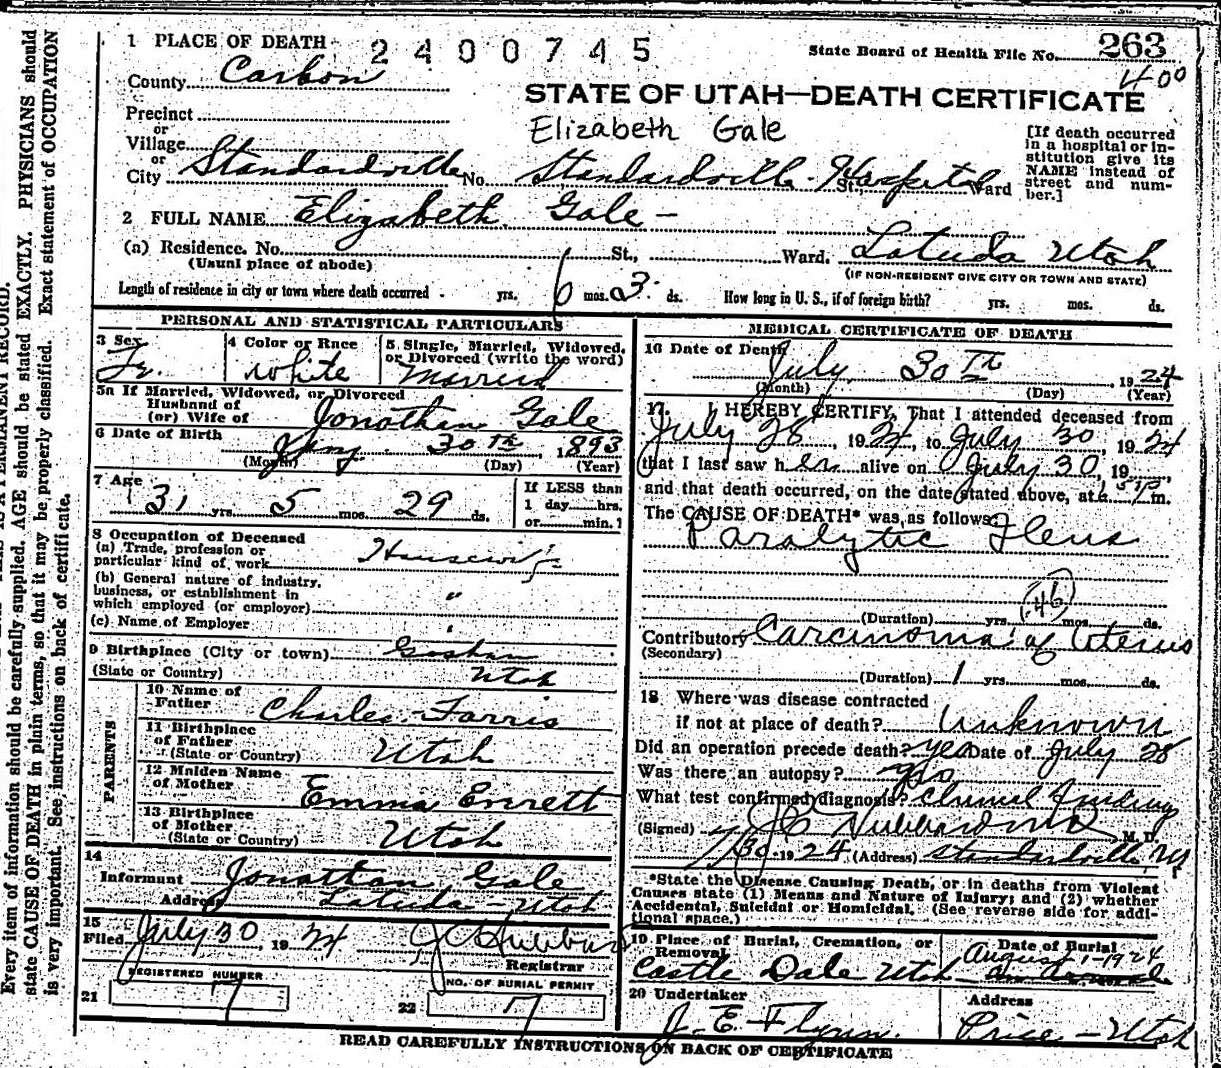 1 PLACE OF DEATH 2400745 State Board of Health File No. 263
County Carbon 400
STATE OF UTAH—DEATH CERTIFICATE
Precinct
or
Village
or
City Standardville No. Standardville Hospital St., Ward
Elizabeth Gale
[If death occurred
in a hospital or in-
stitution give its
NAME instead of
street and num-
ber.]
2 FULL NAME Elizabeth Gale -
(a) Residence. No. St., Ward. Latuda Utah
(Usual place of abode) (IF NON-RESIDENT GIVE CITY OR TOWN AND STATE)
Length of residence in city or town where death occurred - yrs. 6 mos. 3 ds. How long in U. S., if of foreign birth? yrs. mos. ds.
PERSONAL AND STATISTICAL PARTICULARS
3 Sex 4 Color or Race 5 Single, Married, Widowed,
or Divorced (write the word)
Fe. white Married
5a If Married, Widowed, or Divorced
Husband of
(or) Wife of Jonathan Gale
6 Date of Birth Jany 30th, 1893
(Month) (Day) (Year)
7 Age 31 yrs. 5 mos. 29 ds.
If LESS than
1 day hrs.
or min. ?
8 Occupation of Deceased
(a) Trade, profession or
particular kind of work Housewife
(b) General nature of industry,
business, or establishment in
which employed (or employer) "
(c) Name of Employer
9 Birthplace (City or town) Goshen
(State or Country) Utah
PARENTS
10 Name of
Father Charles Farris
11 Birthplace
of Father
(State or Country) Utah
12 Maiden Name
of Mother Emma Everett
13 Birthplace
of Mother
(State or Country) Utah
14
Informant Jonathan Gale
Address Latuda - Utah
15
Filed July 30, 1924 J C Hubbard
Registrar
REGISTERED NUMBER
21 7
NO. OF BURIAL PERMIT
22 7
MEDICAL CERTIFICATE OF DEATH
16 Date of Death July 30th, 1924
(Month) (Day) (Year)
17. I HEREBY CERTIFY, That I attended deceased from
July 28, 1924, to July 30, 1924
that I last saw her alive on July 30, 19
and that death occurred, on the date stated above, at m.
The CAUSE OF DEATH* was as follows:
Paralytic Ileus
(46)
(Duration) yrs. mos. ds.
Contributory Carcinoma of Uterus
(Secondary)
(Duration) 1 yrs. mos. ds.
18 Where was disease contracted
if not at place of death? Unknown
Did an operation precede death? yes Date of July 28
Was there an autopsy?
What test confirmed diagnosis? Clinical Findings
(Signed) J C Hubbard MD M. D.
7/30 1924 (Address) Standardville
*State the Disease Causing Death, or in deaths from Violent
Causes state (1) Means and Nature of Injury; and (2) whether
Accidental, Suicidal or Homicidal. (See reverse side for addi-
tional space.)
19 Place of Burial, Cremation, or
Removal
Castle Dale Utah
Date of Burial
August 1-1924
20 Undertaker
J. E. Flynn.
Address
Price - Utah
READ CAREFULLY INSTRUCTIONS ON BACK OF CERTIFICATE
Every item of information should be carefully supplied. AGE should be stated EXACTLY. PHYSICIANS should
state CAUSE OF DEATH in plain terms, so that it may be properly classified. Exact statement of OCCUPATION
is very important. See instructions on back of certificate.